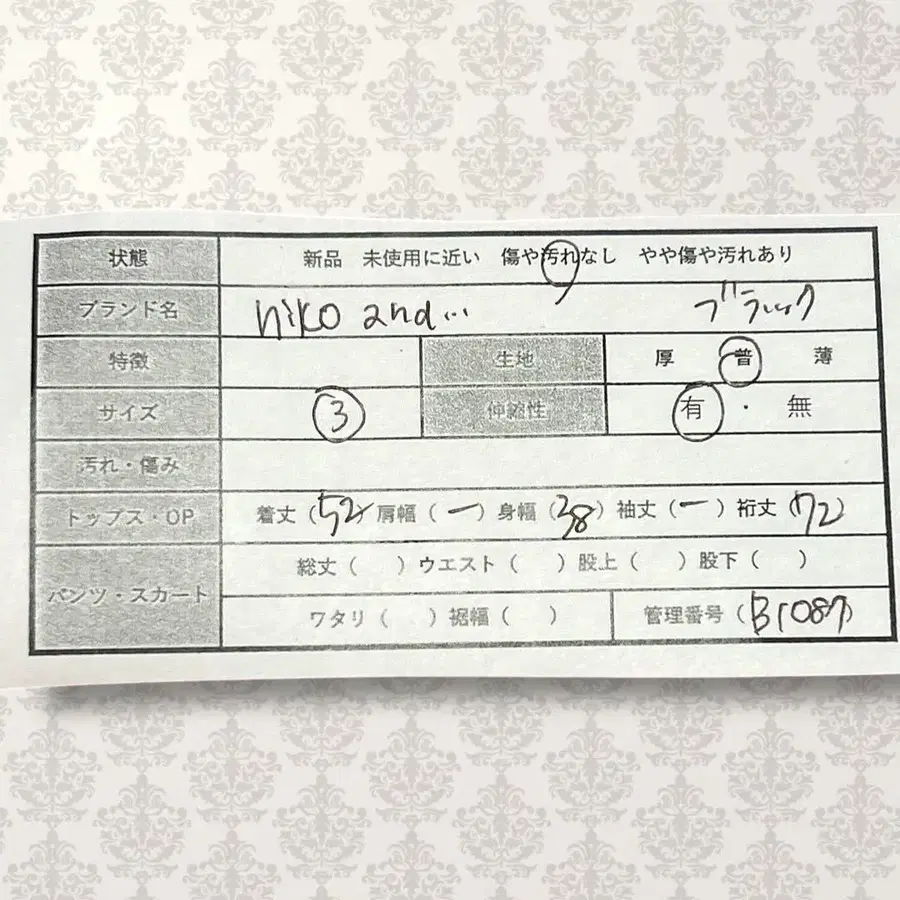 状態 新品 未使用に近い 傷や汚れなし やや傷や汚れあり
ブランド名 niko and... ブラック
特徴 生地 厚 普 薄
サイズ 3 伸縮性 有・無
汚れ・傷み
トップス・OP 着丈(52) 肩幅(ー) 身幅(38) 袖丈(ー) 裄丈(72)
パンツ・スカート 総丈( ) ウエスト( ) 股上( ) 股下( )
ワタリ( ) 裾幅( ) 管理番号(B1087)